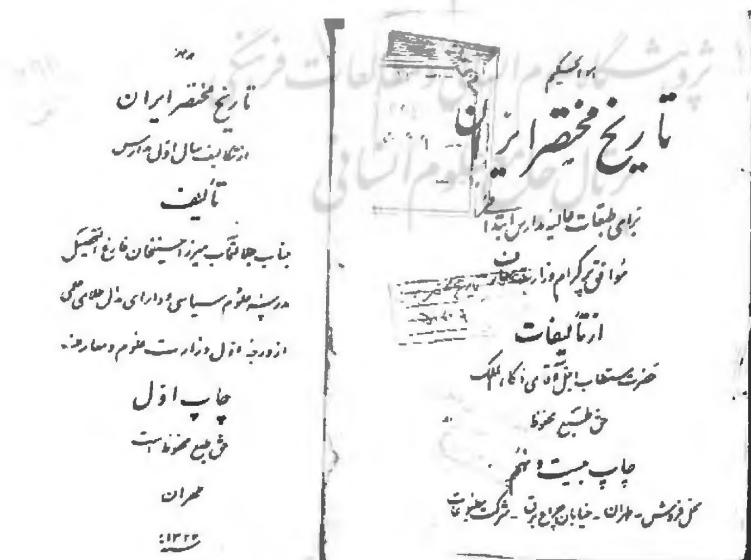 هوالحکیم
تاریخ مختصر ایران
برای طبقات عالیه مدارس ابتدا
موافق پرگرام وزارت
از تألیفات
حضرت مستطاب اجل آقای ذکاء الملک
حق طبع محفوظ
چاپ بیست و نهم
محل فروش - طهران - خیابان چراغ برق - شرکت مطبوعات
تاریخ مختصر ایران
از تکالیف سال اول مدارس
تألیف
جناب جلالتمآب میرزا حسینخان فارغ التحصیل
مدرسه علوم سیاسی و دارای مدال علمی
از درجه اول وزارت علوم و معارف
چاپ اول
حق طبع محفوظ است
طهران
پژوهشگاه علوم انسانی و مطالعات فرهنگی
پرتال جامع علوم انسانی